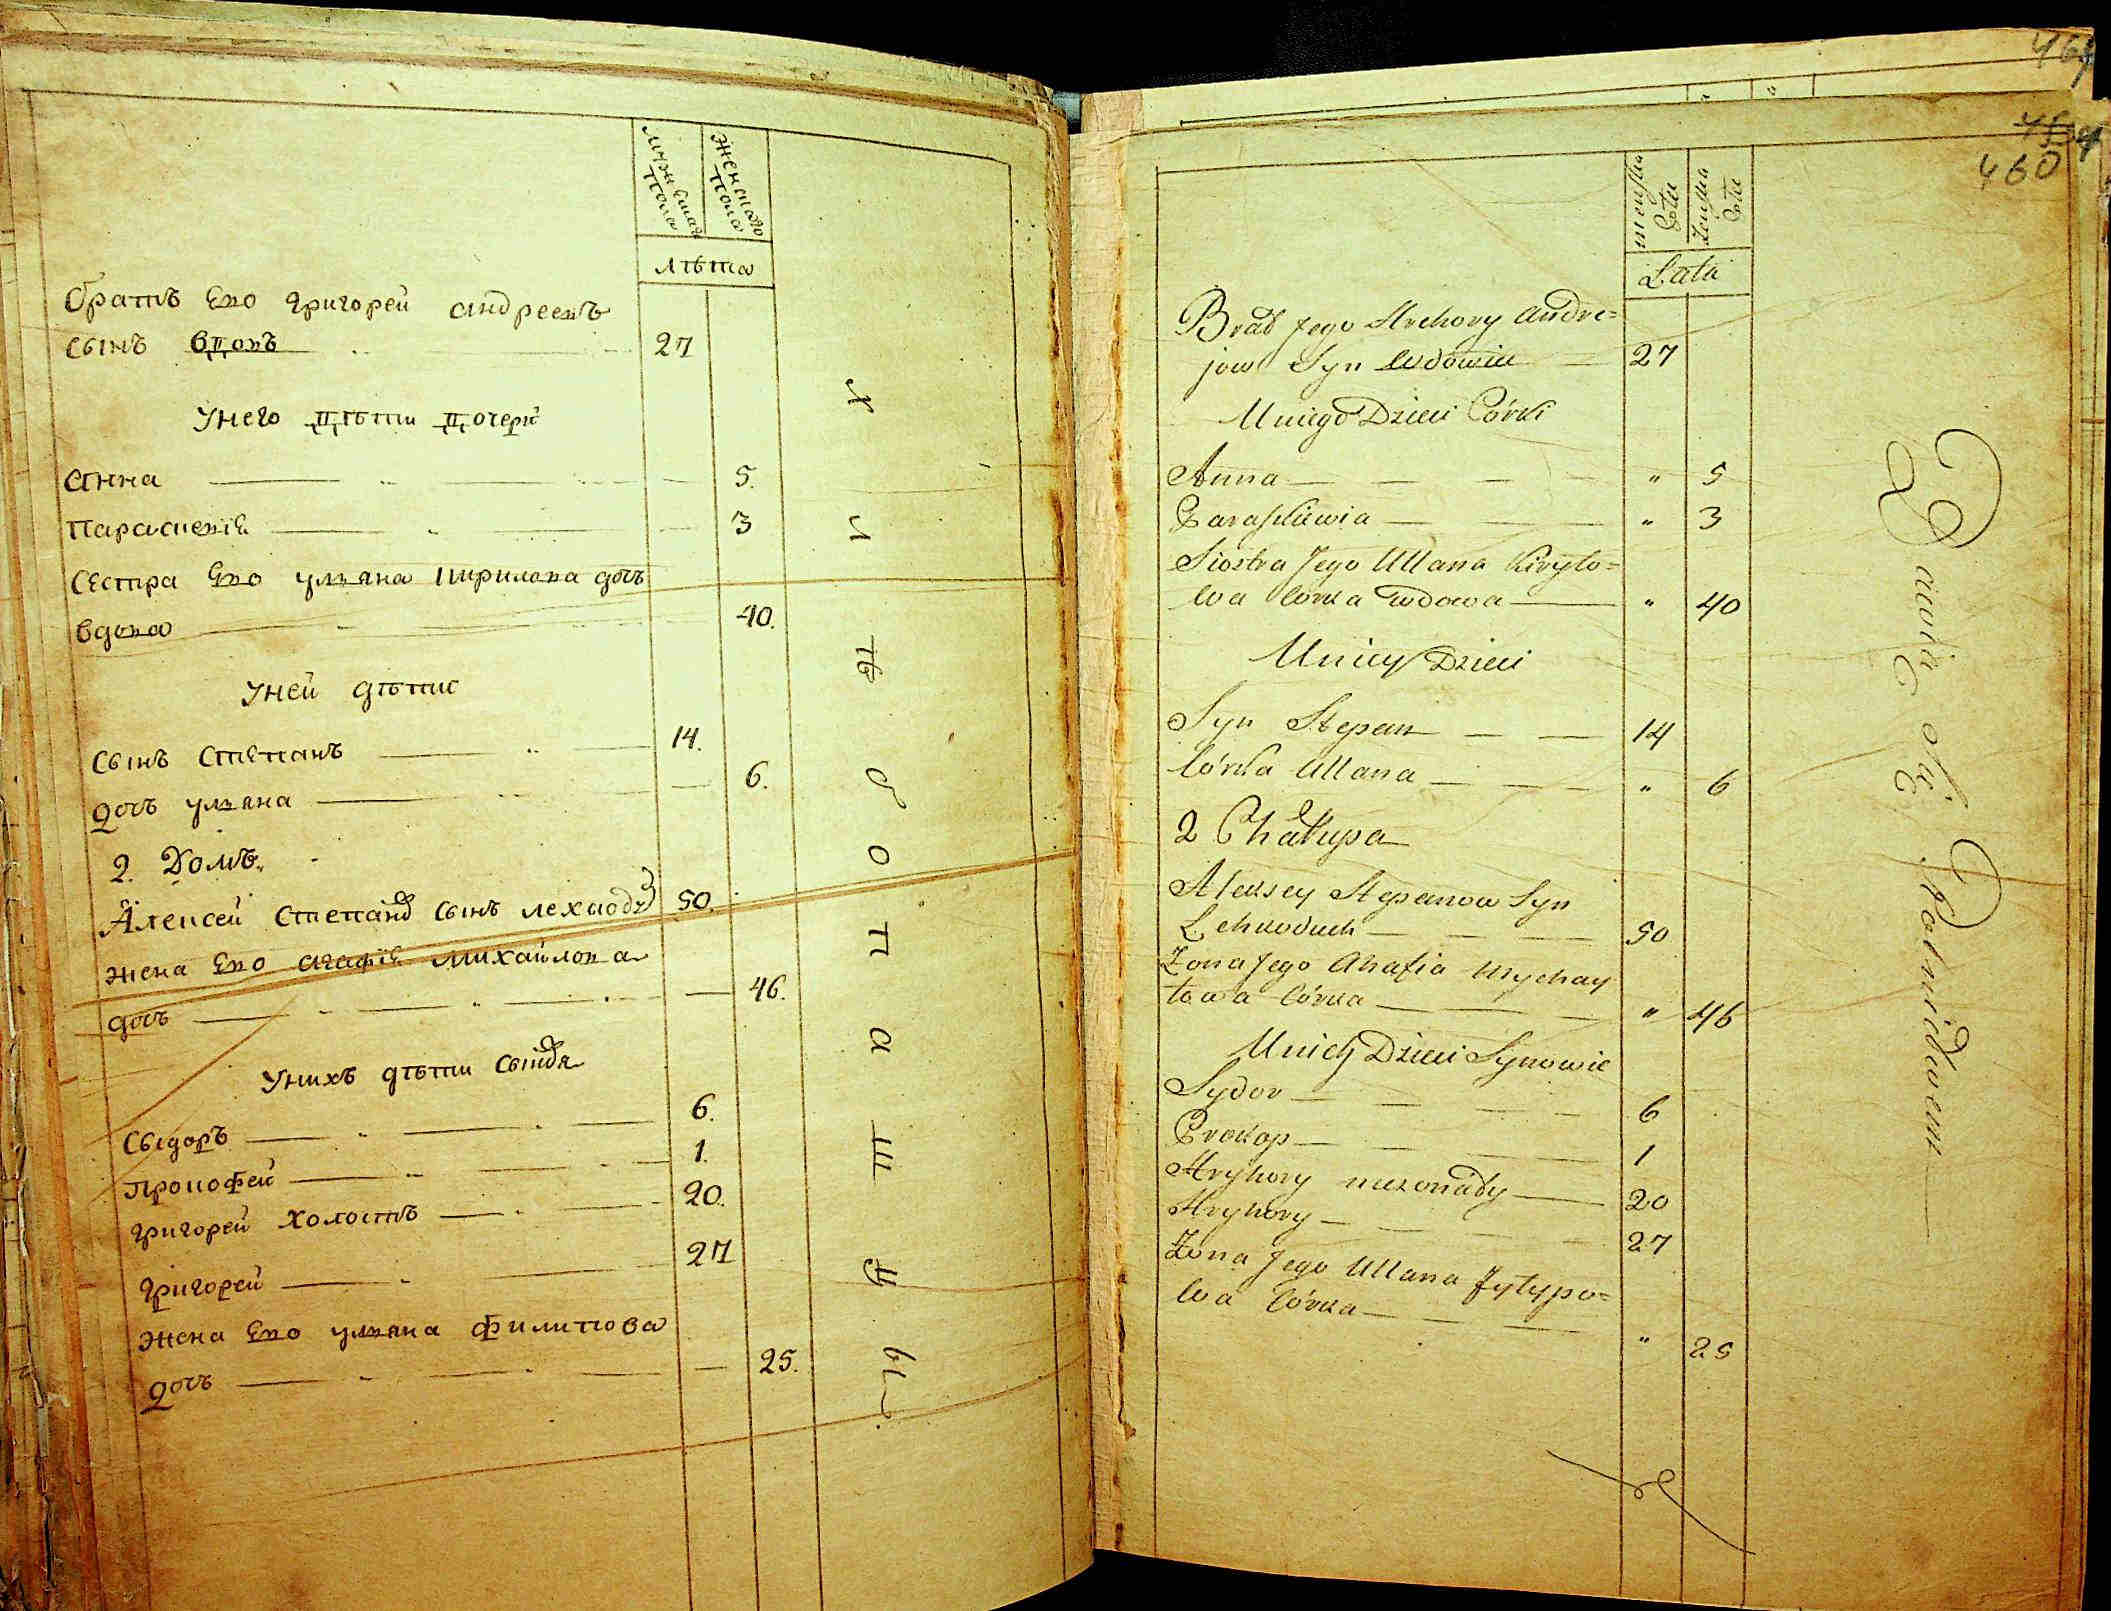 мужеска
пола
женскаго
пола
лѣта
братъ Его григорей андреевъ
сынъ вдовъ 27
Унего дѣти дочери
анна 5.
Параскевія 3
сестра Его ульяна кирилова дочъ
вдова 40.
Уней дѣти
сынъ степанъ 14.
дочъ ульяна 6.
2. Домъ.
Алексей степановъ сынъ лехкодухъ 50.
жена Его агафія михайлова
дочъ 46.
Унихъ дѣти сыновя
сыдоръ 6.
прокофей 1.
григорей холостъ 20.
григорей 27
жена Его ульяна филипова
дочъ 25.
хлѣбопашцы
467
460
męzska
Płeć
żenska
Płeć
Lata
Brat Jego Hrehory Andre=
jow Syn wdowiec 27
U niego Dzieci Córki
Anna " 5
Paraskiewia " 3
Siostra Jego Ullana Kiryło=
wa Córka wdowa " 40
U niey Dzieci
Syn Stepan 14
Córka Ullana " 6
2 Chałupa
Alexsey Stepanow Syn
Lehkoduch 50
Żona Jego Ahafia Mychay
łowa Córka " 46
U nich Dzieci Synowie
Sydor 6
Prokop 1
Hryhory niezonaty 20
Hryhory 27
Żona Jego Ullana Fylypo=
wa Córka " 25
Bawią się Rolnictwem